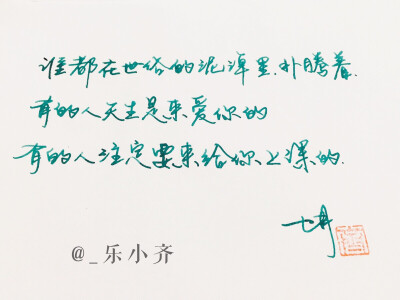 谁都在世俗的泥潭里.扑腾着.
有的人天生是来爱你的
有的人注定要来给你上课的.
@_乐小齐